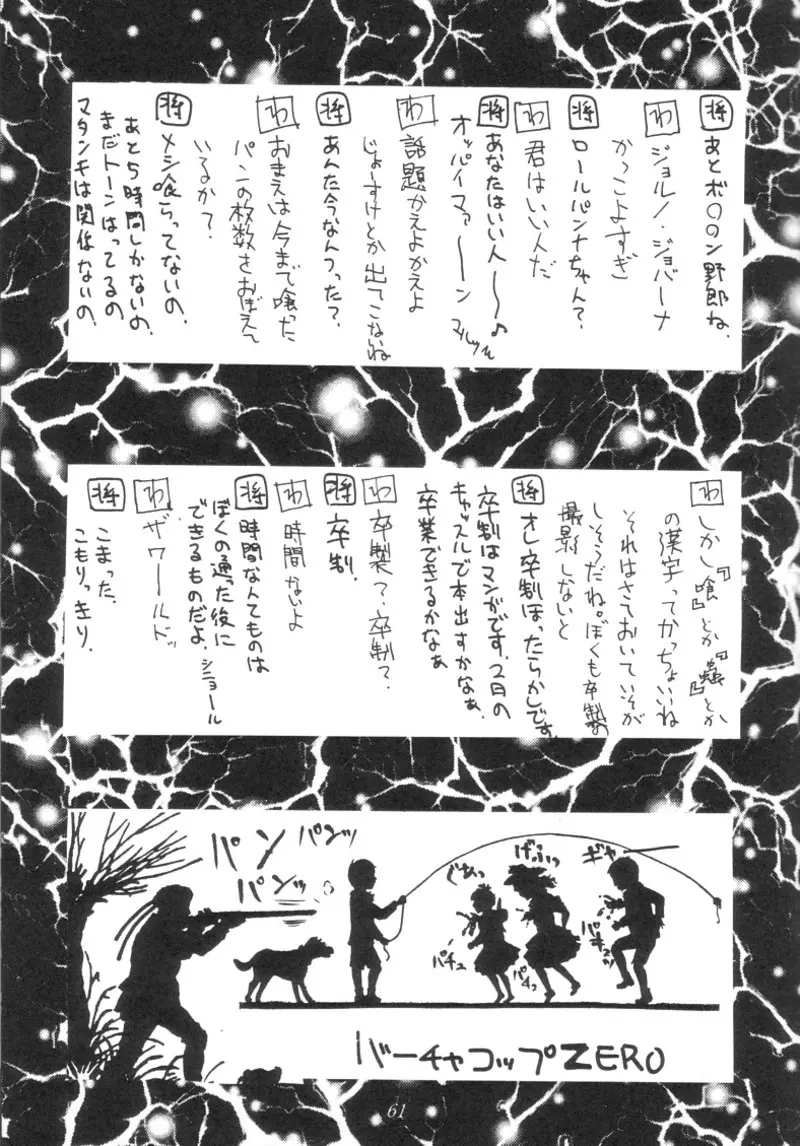 将 あとボ○○ン野郎ね。
わ ジョルノ・ジョバーナ
かっこよすぎ
将 ロールパンナちゃん?
わ 君はいい人だ
将 あなたはいい人〜〜♪
オッパイマァ〜〜ン
わ 話題かえよかえよ
じょーすけとか出てこないね
将 あんた今なんつった?
わ おまえは今まで喰った
パンの枚数をおぼえて
いるか?
将 メシ喰らってないの。
あと5時間しかないの。
まだトーンはってるの
マタンキは関係ないの。
わ しかし『喰』とか『蟲』とか
の漢字ってかっちょいいね
それはさておいていそが
しそうだね。ぼくも卒製の
撮影しないと
将 オレ卒制ほったらかしです。
卒制はマンガです。2日の
キャッスルで本出すかなぁ。
卒業できるかなぁ
わ 卒製?・卒制?
将 卒制。
わ 時間ないよ
将 時間なんてものは
ぼくの通った後に
できるものだよ。シニョール
わ ザ・ワールドッ
将 こまった。
こもりっきり。
パン
パンッ
パンッ
ぐあっ
げふっ
ギャー
パチュ
パチュ
パチュッ
バーチャコップZERO
61